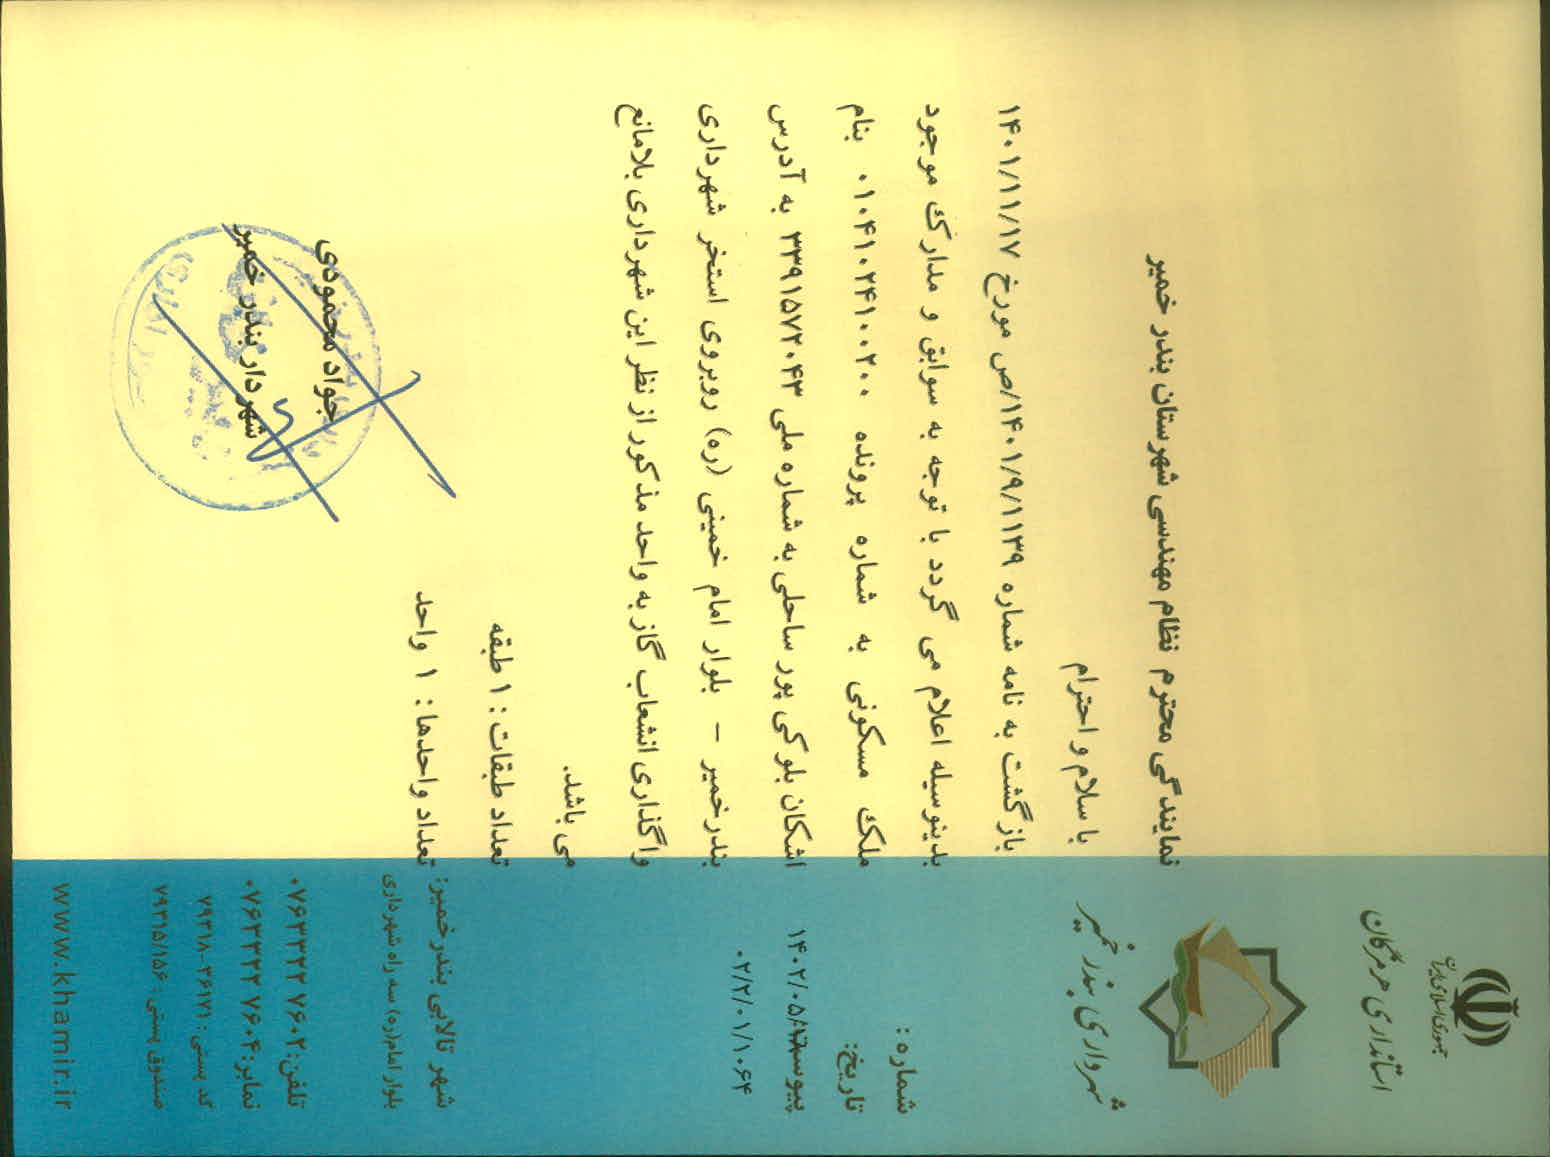 جمهوری اسلامی ایران
استانداری هرمزگان
شهرداری بندر خمیر
شماره :
تاریخ:
پیوست
۱۴۰۲/۰۵/
۰۲/۲/۰۱/۱۰۶۴
شهر تالابی بندر خمیر:
بلوار امام(ره) سه راه شهرداری
تلفن: ۰۷۶۳۳۲۲۷۶۰۲
نمابر: ۰۷۶۳۳۲۲۷۶۰۴
کد پستی: ۷۹۳۱۸-۳۶۱۷۱
صندوق پستی: ۷۹۳۱۵/۱۵۶
www.khamir.ir
نمایندگی محترم نظام مهندسی شهرستان بندر خمیر
با سلام و احترام
بازگشت به نامه شماره ۱۴۰۱/۹/۱۱۳۹/ص مورخ ۱۴۰۱/۱۱/۱۷
بدینوسیله اعلام می گردد با توجه به سوابق و مدارک موجود
ملک مسکونی به شماره پرونده ۰۱۰۴۱۰۲۴۱۰۰۲۰۰ بنام
اشکان بلوکی پور ساحلی به شماره ملی ۳۳۹۱۵۷۲۰۴۳ به آدرس
بندرخمیر – بلوار امام خمینی (ره) روبروی استخر شهرداری
واگذاری انشعاب گاز به واحد مذکور از نظر این شهرداری بلامانع
می باشد.
تعداد طبقات : ۱ طبقه
تعداد واحدها : ۱ واحد
جواد محمودی
شهردار بندر خمیر